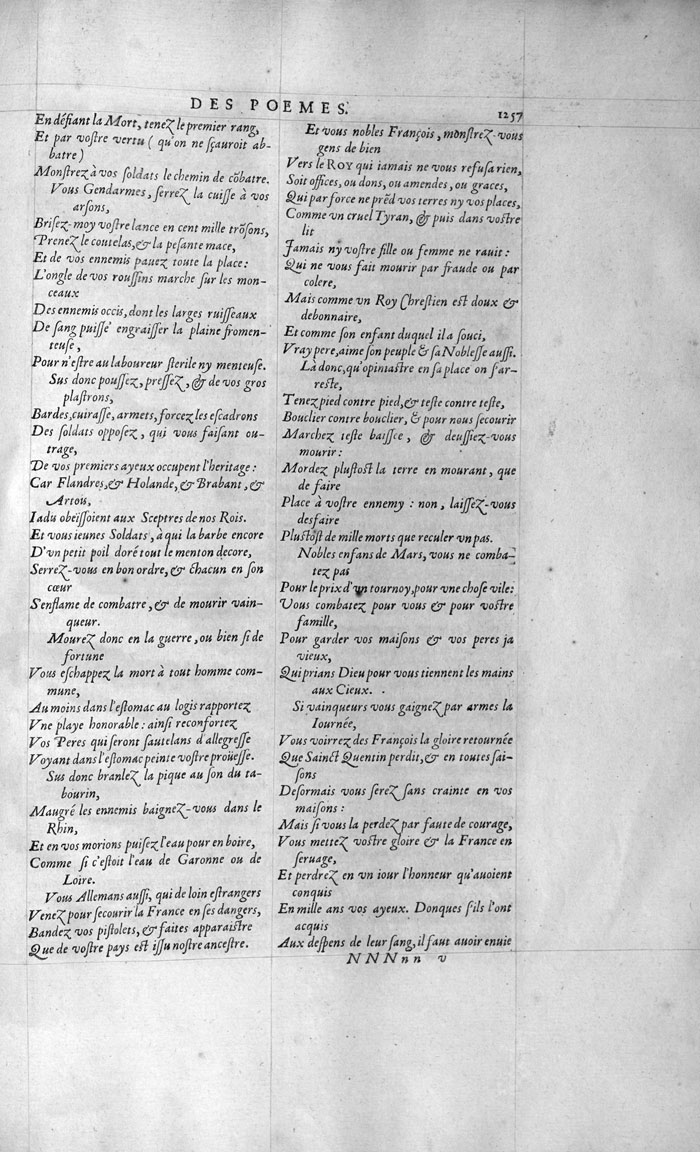 DES POEMES.
1257
En défiant la Mort, tenez le premier rang,
Et par vostre vertu (qu'on ne sçauroit ab-
batre)
Monstrez à vos soldats le chemin de cõbatre.
Vous Gendarmes, serrez la cuisse à vos
arsons,
Brisez-moy vostre lance en cent mille trõsons,
Prenez le coutelas, & la pesante mace,
Et de vos ennemis pavez toute la place:
L'ongle de vos roussins marche sur les mon-
ceaux
Des ennemis occis, dont les larges ruisseaux
De sang puisse engraisser la plaine fromen-
teuse,
Pour n'estre au laboureur sterile ny menteuse.
Sus donc poussez, pressez, & de vos gros
plastrons,
Bardes, cuirasse, armets, forcez les escadrons
Des soldats opposez, qui vous faisant ou-
trage,
De vos premiers ayeux occupent l'heritage:
Car Flandres, & Holande, & Brabant, &
Artois,
Iadu obeïssoient aux Sceptres de nos Rois.
Et vous ieunes Soldats, à qui la barbe encore
D'vn petit poil doré tout le menton decore,
Serrez-vous en bon ordre, & chacun en son
cœur
S'enflame de combatre, & de mourir vain-
queur.
Mourez donc en la guerre, ou bien si de
fortune
Vous eschappez la mort à tout homme com-
mune,
Au moins dans l'estomac au logis rapportez
Vne playe honorable: ainsi reconfortez
Vos Peres qui seront sautelans d'allegresse
Voyant dans l'estomac peinte vostre proüesse.
Sus donc branlez la pique au son du ta-
bourin,
Maugré les ennemis baignez-vous dans le
Rhin,
Et en vos morions puisez l'eau pour en boire,
Comme si c'estoit l'eau de Garonne ou de
Loire.
Vous Allemans aussi, qui de loin estrangers
Venez pour secourir la France en ses dangers,
Bandez vos pistolets, & faites apparaistre
Que de vostre pays est issu nostre ancestre.
Et vous nobles François, monstrez-vous
gens de bien
Vers le ROY qui iamais ne vous refusa rien,
Soit offices, ou dons, ou amendes, ou graces,
Qui par force ne prẽd vos terres ny vos places,
Comme vn cruel Tyran, & puis dans vostre
lit
Jamais ny vostre fille ou femme ne rauit:
Qui ne vous fait mourir par fraude ou par
colere,
Mais comme vn Roy Chrestien est doux &
debonnaire,
Et comme son enfant duquel il a souci,
Vray pere, aime son peuple & sa Noblesse aussi.
La donc, qu'opiniastre en sa place on s'ar-
reste,
Tenez pied contre pied, & teste contre teste,
Bouclier contre bouclier, & pour nous secourir
Marchez teste baissce, & deussiez-vous
mourir:
Mordez plustost la terre en mourant, que
de faire
Place à vostre ennemy: non, laissez-vous
desfaire
Plustost de mille morts que reculer vn pas.
Nobles enfans de Mars, vous ne comba-
tez pas
Pour le prix d'vn tournoy, pour vne chose vile:
Vous combatez pour vous & pour vostre
famille,
Pour garder vos maisons & vos peres ja
vieux,
Qui prians Dieu pour vous tiennent les mains
aux Cieux.
Si vainqueurs vous gaignez par armes la
Iournée,
Vous voirrez des François la gloire retournée
Que Sainct Quentin perdit, & en toutes sai-
sons
Desormais vous serez sans crainte en vos
maisons:
Mais si vous la perdez par faute de courage,
Vous mettez vostre gloire & la France en
seruage,
Et perdrez en vn iour l'honneur qu'auoient
conquis
En mille ans vos ayeux. Donques s'ils l'ont
acquis
Aux despens de leur sang, il faut auoir enuie
NNNnn v